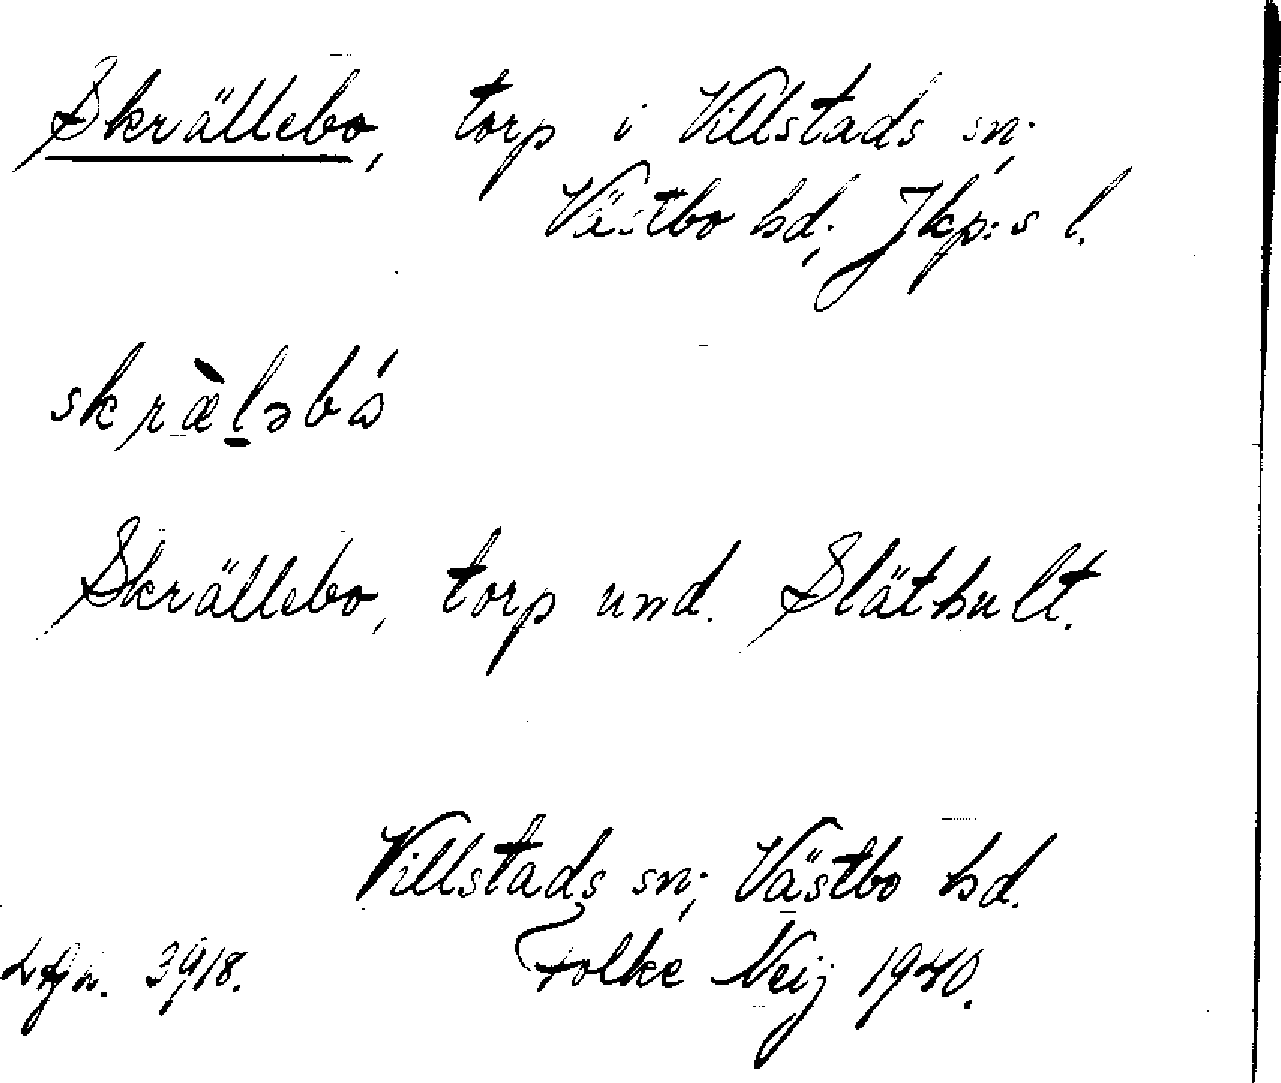 Skrällebo, torp i Villstads sn;
Västbo hd; Jkp:s l.
skræ̀ḻəbó
Skrällebo, torp und. Släthult.
Villstads sn; Västbo hd.
3918. Folke Neij 1940.